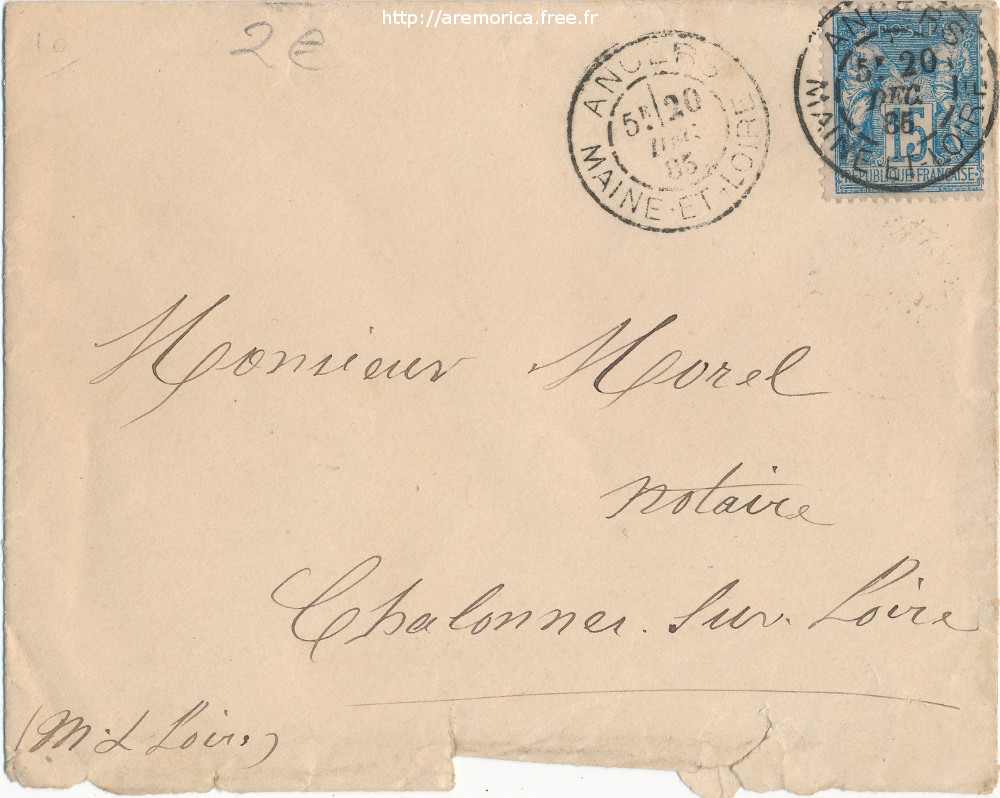 http://aremorica.free.fr
10
2€
ANGERS
5E 20
DEC
85
MAINE-ET-LOIRE
POSTE
ANGERS
5E 20
DEC
85
MAINE-ET-LOIRE
15
REPUBLIQUE FRANÇAISE
Monsieur Morel
notaire
Chalonnes. sur. Loire
(M. & Loire)